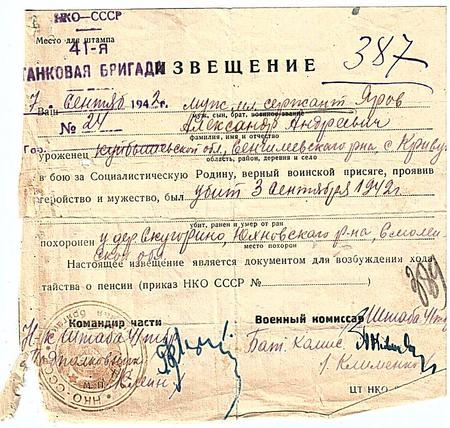 НКО-СССР
Место для штампа
41-я
ТАНКОВАЯ БРИГАДА
ИЗВЕЩЕНИЕ
387
7 сентяб 1942 г.
Ваш муж мл сержант Яров
муж, сын, брат, военное звание
№ 24
Александр Андреевич
фамилия, имя и отчество
уроженец куйбышевской обл, Сенгилеевского р-на с. Криву
область, район, деревня и село
в бою за Социалистическую Родину, верный воинской присяге, проявив
геройство и мужество, был убит 3 сентября 1942 г.
убит, ранен и умер от ран
похоронен у дер Скугорино, Юхновского р-на, Смолен
место похорон
ской обл
Настоящее извещение является документом для возбуждения хода
тайства о пенсии (приказ НКО СССР №
389
Командир части
Военный комиссар
Штаба
Н-к Штаба
Подполковник
НКО-СССР
Бат комис
Клименко
ЦТ НКО